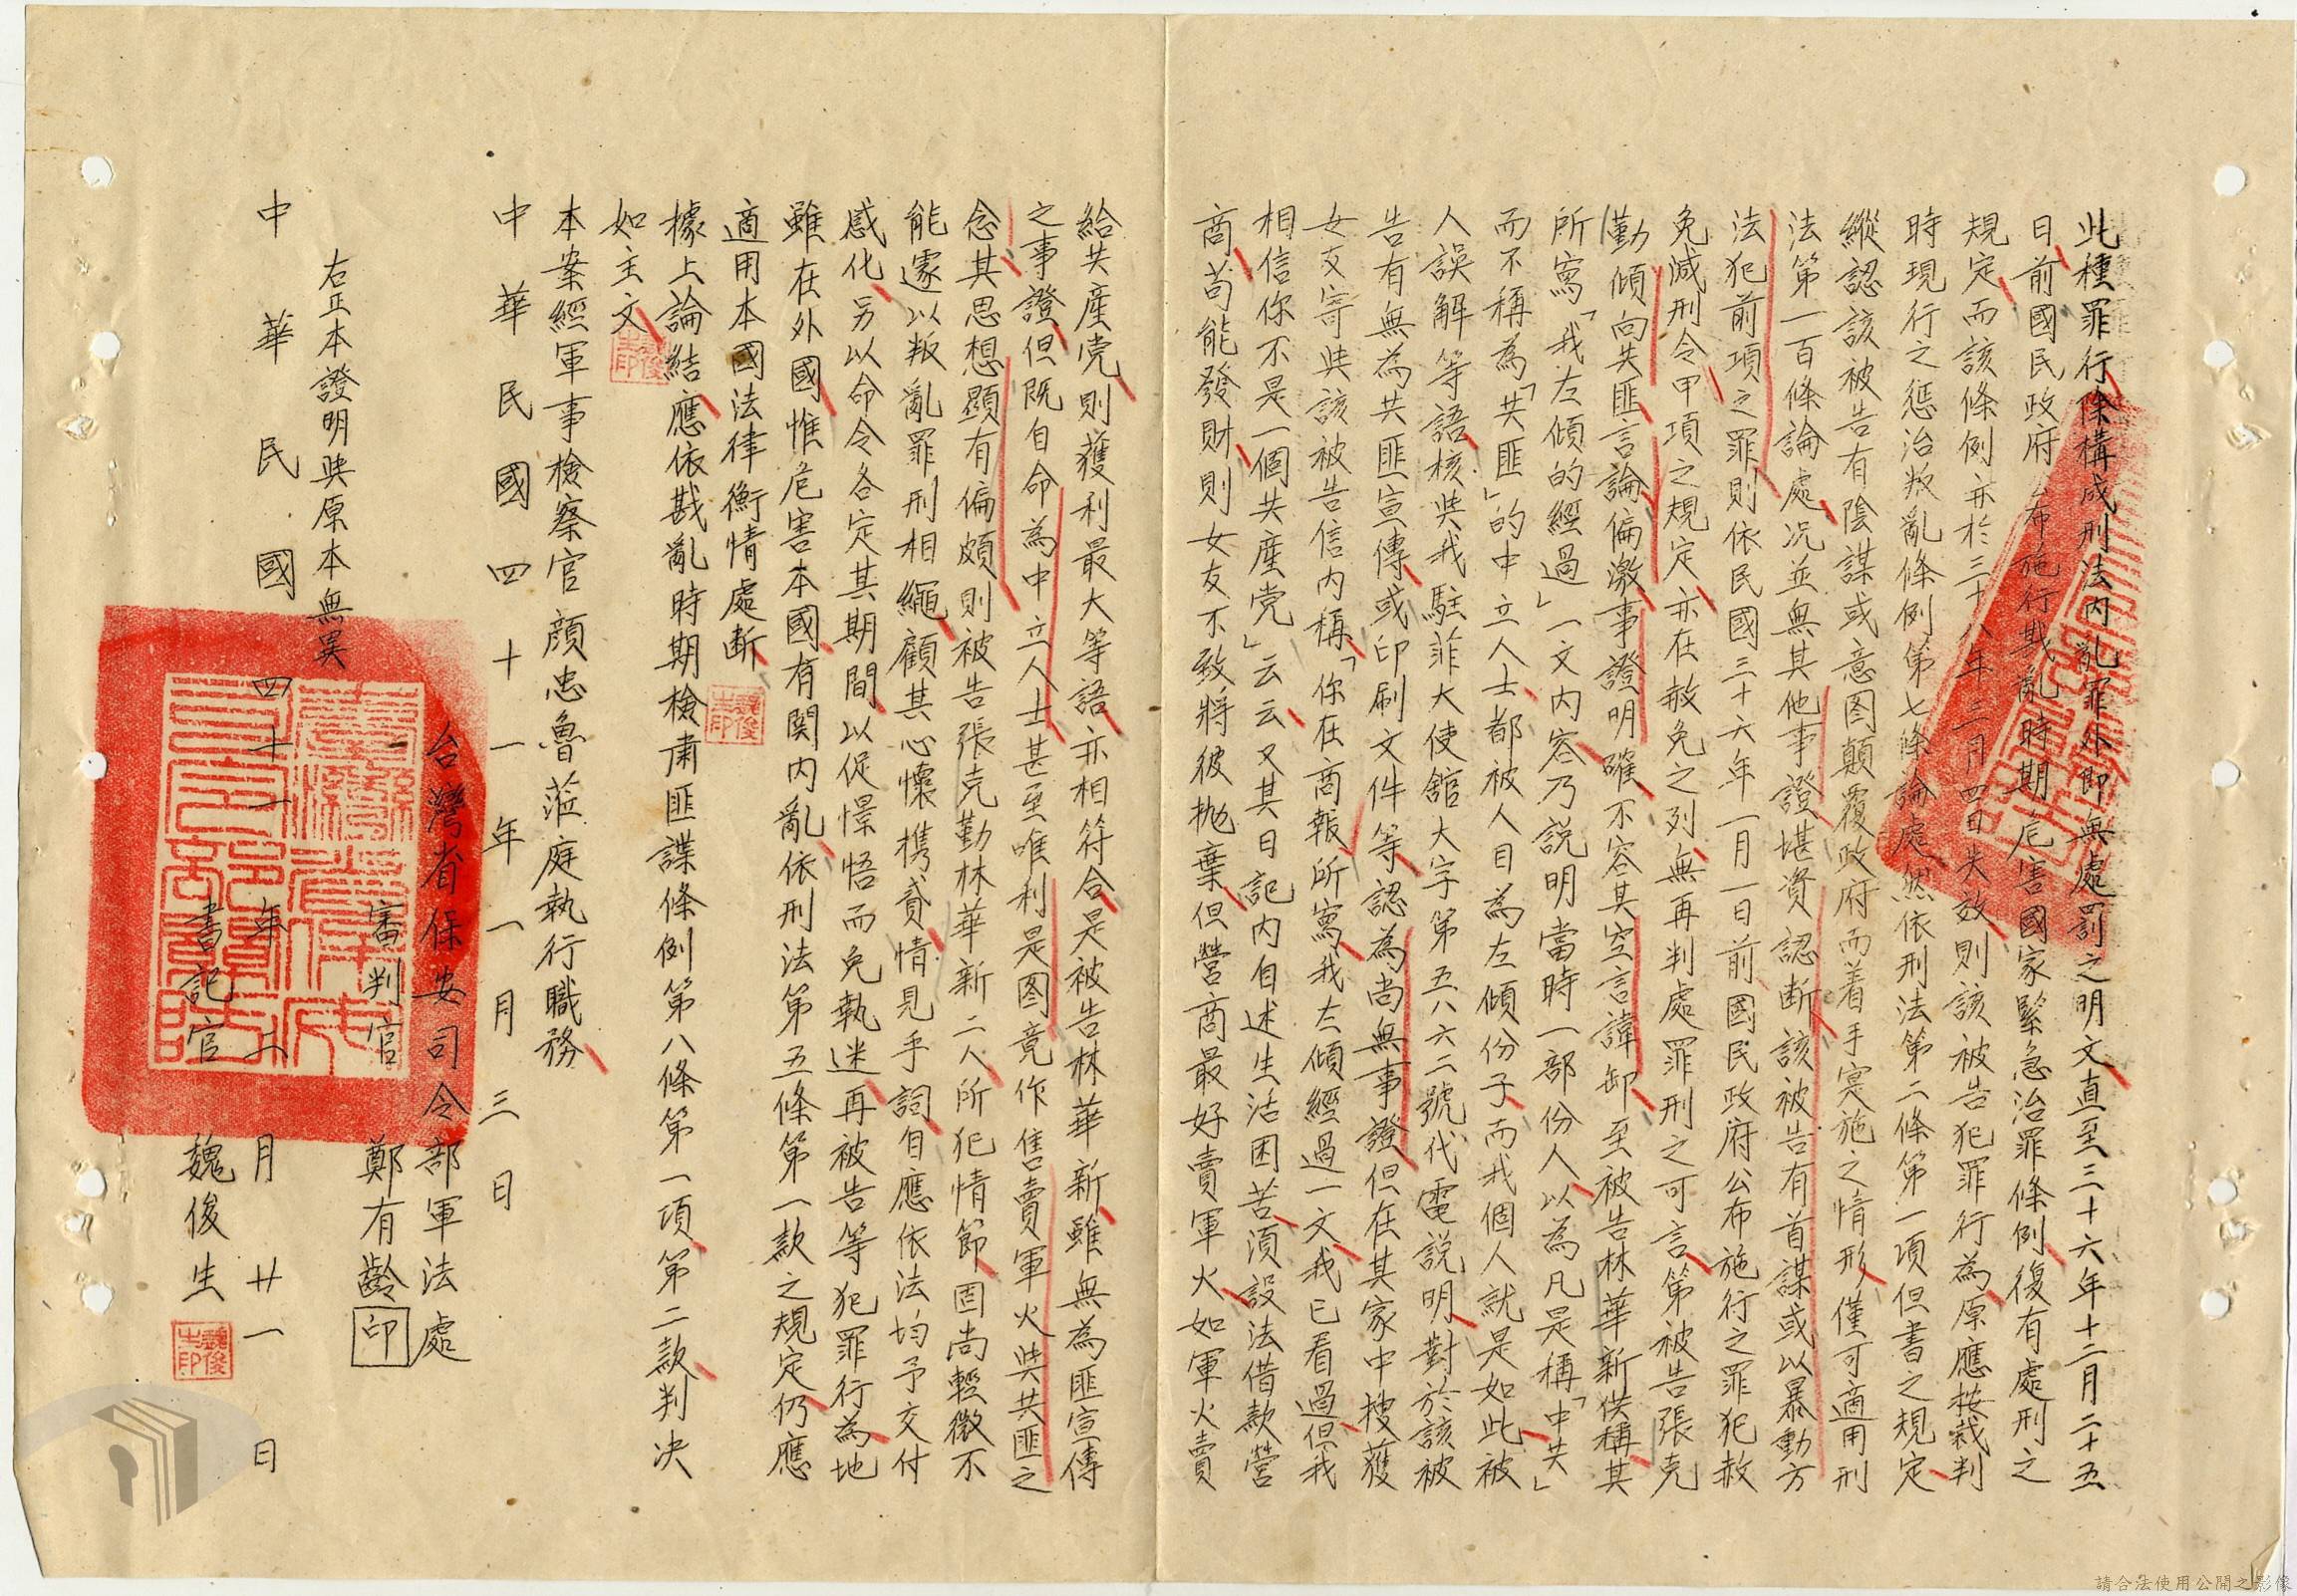 此種罪行除構成刑法內亂罪外即無處罰之明文直至三十六年十二月二十五
日前國民政府公布施行戡亂時期危害國家緊急治罪條例復有處刑之
規定而該條例亦於三十八年三月四日失效則該被告犯罪行為原應按裁判
時現行之懲治叛亂條例第七條論處然依刑法第二條第一項但書之規定
縱認該被告有陰謀或意图顛覆政府而着手寔施之情形僅可適用刑
法第一百條論處况並無其他事證堪資認断該被告有首謀或以暴動方
法犯前項之罪則依民國三十六年一月一日前國民政府公布施行之罪犯赦
免减刑令甲項之規定亦在赦免之列無再判處罪刑之可言第被告張克
勤傾向共匪言論偏激事證明確不容其空言諱卸至被告林華新供稱其
所寫「我左傾的經過」一文內容乃説明當時一部份人以為凡是稱「中共」
而不稱為「共匪」的中立人士都被人目為左傾份子而我個人就是如此被
人誤解等語核與我駐菲大使館大字第五八六二號代電説明對於該被
告有無為共匪宣傳或印刷文件等認為尚無事證但在其家中搜獲
女友寄與該被告信內稱「你在商報所寫我左傾經過一文我已看過但我
相信你不是一個共產党」云云又其日記內自述生活困苦須設法借款營
商苟能發財則女友不致將彼抛棄但營商最好賣軍火如軍火賣
給共產党則獲利最大等語亦相符合是被告林華新雖無為匪宣傳
之事證但既自命為中立人士甚至唯利是图竟作售賣軍火與共匪之
念其思想顯有偏頗則被告張克勤林華新二人所犯情節固尚輕微不
能遽以叛亂罪刑相繩顧其心懷携貳情見乎詞自應依法均予交付
感化另以命令各定其期間以促憬悟而免執迷再被告等犯罪行為地
雖在外國惟危害本國有関內亂依刑法第五條第一款之規定仍應
適用本國法律衡情處断
據上論結應依戡亂時期檢肅匪諜條例第八條第一項第二款判决
如主文
本案經軍事檢察官顔忠魯蒞庭執行職務
中華民國四十一年一月三日
台灣省保安司令部軍法處
審判官 鄭有齡 印
右正本證明與原本無異
中華民國四十一年二月廿一日
書記官 魏俊生
魏俊生印
請合法使用公開之影像